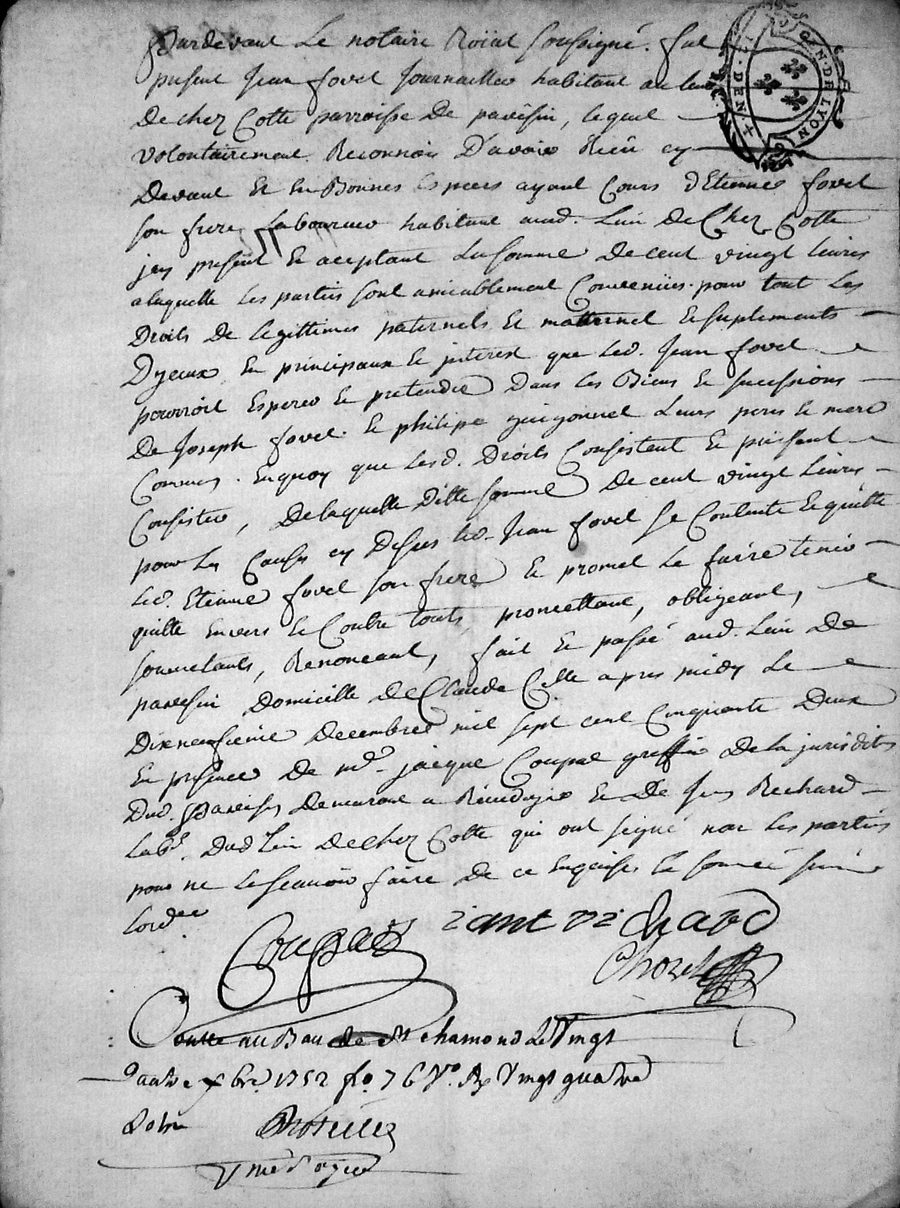 Pardevant Le notaire Roïial soussigné. fut
present Jean fovel Journallier habitant au lieu
De chez Cotte parroisse de pavésin, lequel
volontairement Reconnois D'avoir Recu cy
Devant Et En Bonnes Especes ayant Cours d'Etienne fovel
son frere Laboureur habitant aud. Lieu De Chez Cotte
jcy present Et aceptant La somme De cent vingt Livres
a laquelle Les parties sont amiablement Convenües pour tout Les
Droits De legittimes paternels Et matternel Et suplements
D'yceux En principaux Et jnterest que led. Jean fovel
pourroit Esperer Et pretendre Dans les Biens Et successions
De Joseph fovel Et philipe guigonnel Leurs pere Et mere
Communs. Enquoy que lesd. Droits Consistent Et puissent
Consister, De laquelle Ditte somme De cent vingt Livres
pour les Causes cy Dessus led. Jean fovel se Contente Et quitte
led. Etienne fovel son frere Et promet Le faire tenir
quitte Envers Et Contre touts, promettant, obligeant,
soumettants, Renonceant, fait Et passé aud. Lieu De
pavesin Domicille De Claude Cotte apres midy Le
Dixneufieme Decembre mil sept cent Cinquante Deux
En presence De me. jacque Coupat greffier De la jurisditon
Dud. Pavesin Demeurant a Et De Jean Richard
Labr. Dud. Lieu De chez Cotte qui ont signé non les parties
pour ne le scavoir faire De ce Enquises Et sommé suivt.
Lordce
Coupat iant richard
Chorel
GEN. DE LYON
Conttrollé au Bau de St chamond Le Vingt
quatre xbre 1752 fo. 76 Vo. R Vingt quatre
sols